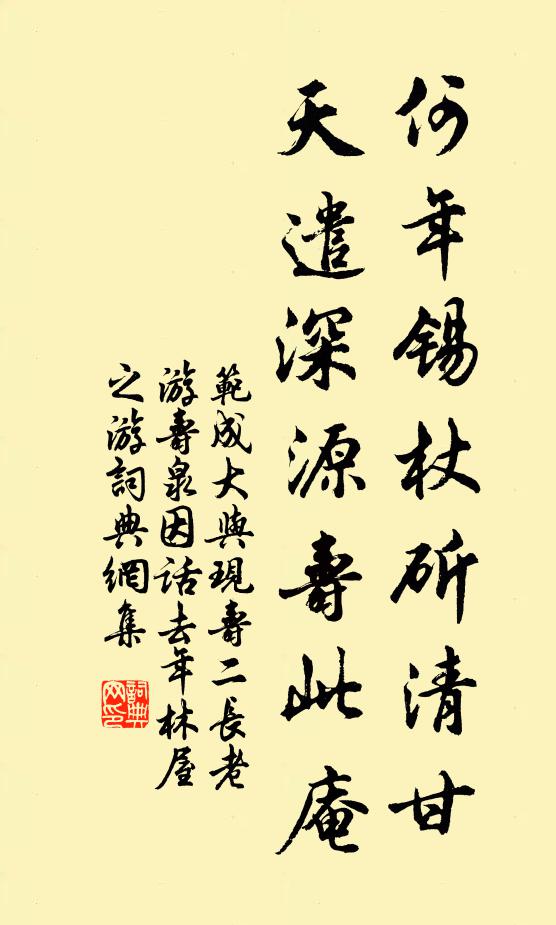 何年錫杖斫清甘
天遣深源壽此庵
範成大與現壽二長老
游壽泉因話去年林屋
之游詞典網集
詞典
网印